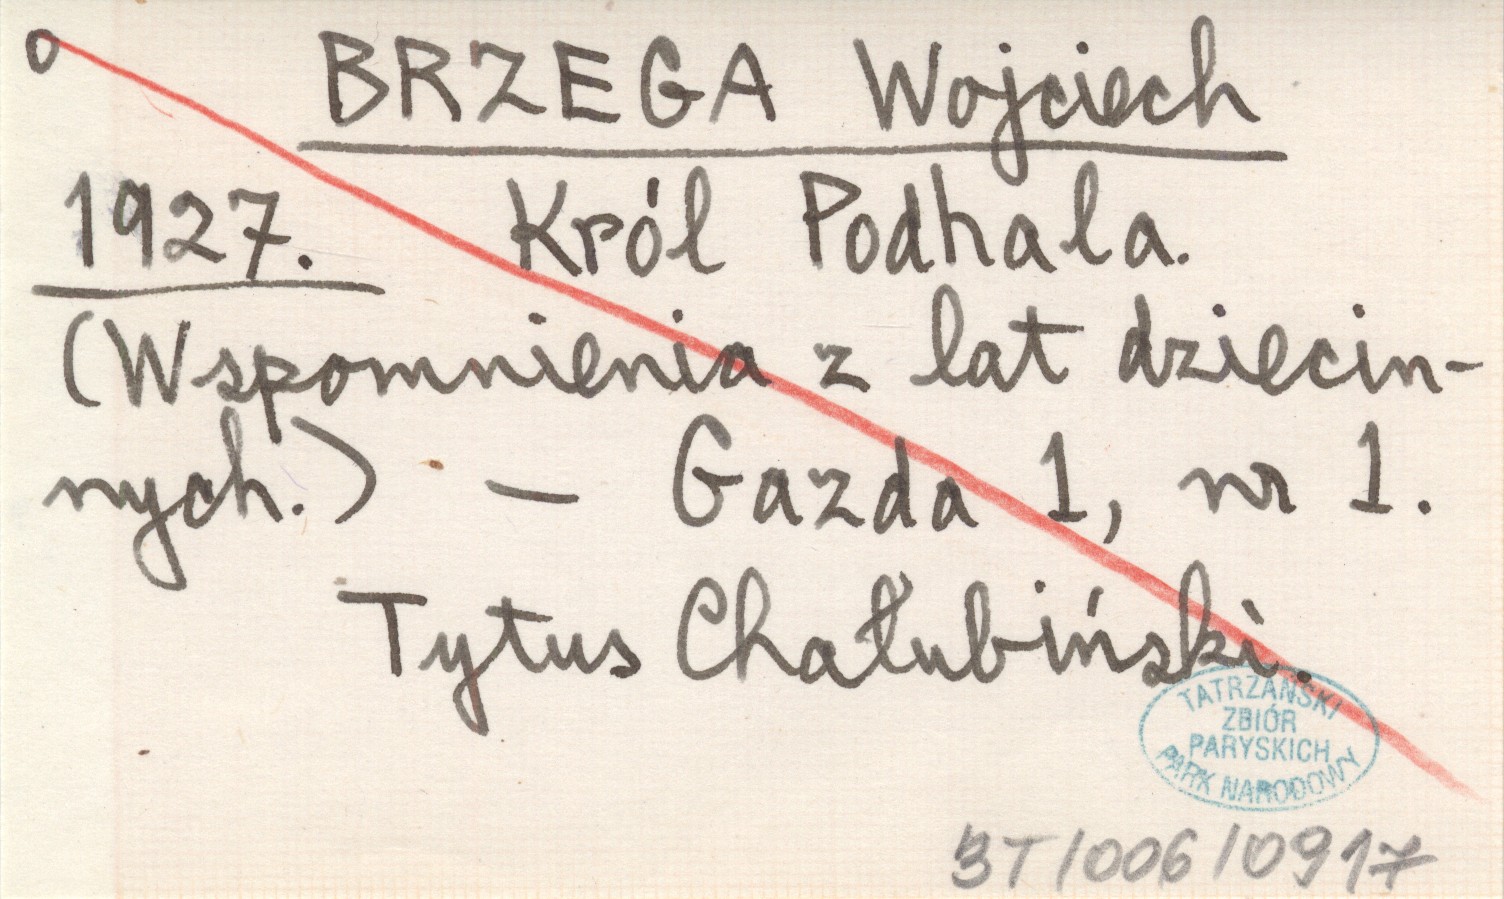 o BRZEGA Wojciech
1927. Król Podhala.
(Wspomnienia z lat dziecin-
nych.) — Gazda 1, nr 1.
Tytus Chałubiński.
TATRZAŃSKI
ZBIÓR
PARYSKICH
PARK NARODOWY
BT/006/0917